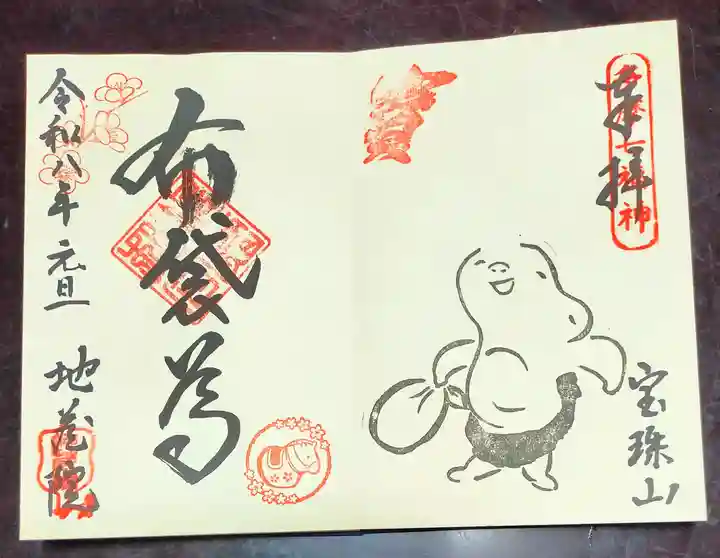 奉拝
七福神
宝珠山
布袋尊
令和八年 元旦 地蔵院